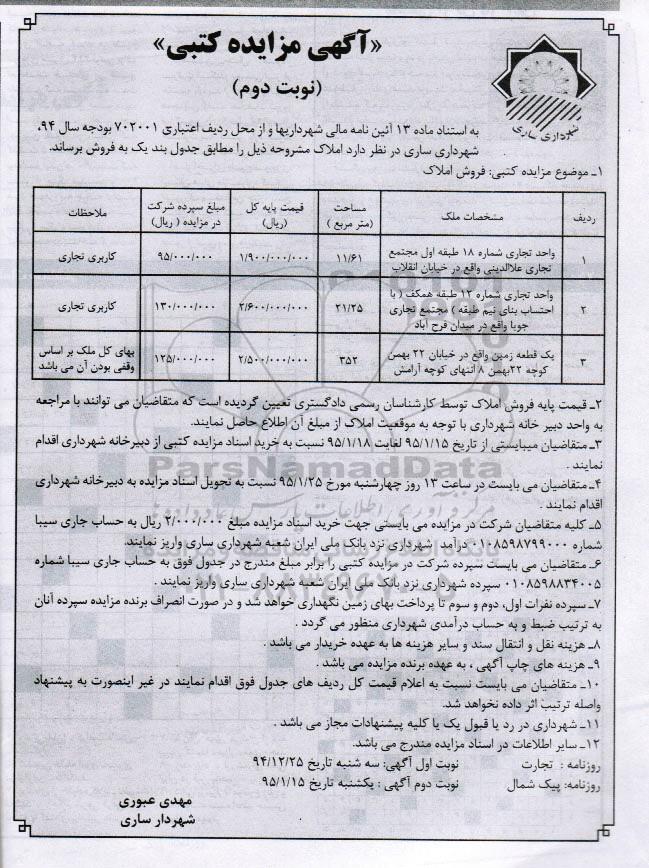 «آگهی مزایده کتبی»
(نوبت دوم)
شهرداری ساری
به استناد ماده ۱۳ آئین نامه مالی شهرداریها و از محل ردیف اعتباری ۷۰۲۰۰۱ بودجه سال ۹۴،
شهرداری ساری در نظر دارد املاک مشروحه ذیل را مطابق جدول بند یک به فروش برساند.
۱ـ موضوع مزایده کتبی: فروش املاک
ردیف مشخصات ملک مساحت (متر مربع) قیمت پایه کل (ریال) مبلغ سپرده شرکت در مزایده (ریال) ملاحظات
۱ واحد تجاری شماره ۱۸ طبقه اول مجتمع تجاری علاالدینی واقع در خیابان انقلاب ۱۱/۶۱ ۱/۹۰۰/۰۰۰/۰۰۰ ۹۵/۰۰۰/۰۰۰ کاربری تجاری
۲ واحد تجاری شماره ۱۲ طبقه همکف (با احتساب بنای نیم طبقه) مجتمع تجاری جویا واقع در میدان فرح آباد ۲۱/۲۵ ۲/۶۰۰/۰۰۰/۰۰۰ ۱۳۰/۰۰۰/۰۰۰ کاربری تجاری
۳ یک قطعه زمین واقع در خیابان ۲۲ بهمن کوچه ۲۲بهمن ۸ انتهای کوچه آرامش ۳۵۲ ۲/۵۰۰/۰۰۰/۰۰۰ ۱۲۵/۰۰۰/۰۰۰ بهای کل ملک بر اساس وقفی بودن آن می باشد
۲ـ قیمت پایه فروش املاک توسط کارشناسان رسمی دادگستری تعیین گردیده است که متقاضیان می توانند با مراجعه
به واحد دبیر خانه شهرداری با توجه به موقعیت املاک از مبلغ آن اطلاع حاصل نمایند.
۳ـ متقاضیان میبایستی از تاریخ ۹۵/۱/۱۵ لغایت ۹۵/۱/۱۸ نسبت به خرید اسناد مزایده کتبی از دبیرخانه شهرداری اقدام
نمایند.
۴ـ متقاضیان می بایست در ساعت ۱۳ روز چهارشنبه مورخ ۹۵/۱/۲۵ نسبت به تحویل اسناد مزایده به دبیرخانه شهرداری
اقدام نمایند.
۵ـ کلیه متقاضیان شرکت در مزایده می بایستی جهت خرید اسناد مزایده مبلغ ۲/۰۰۰/۰۰۰ ریال به حساب جاری سیبا
شماره ۰۱۰۸۵۹۸۷۹۹۰۰۰ درآمد شهرداری نزد بانک ملی ایران شعبه شهرداری ساری واریز نمایند.
۶ـ متقاضیان می بایست سپرده شرکت در مزایده کتبی را برابر مبلغ مندرج در جدول فوق به حساب جاری سیبا شماره
۰۱۰۸۵۹۸۸۳۴۰۰۵ سپرده شهرداری نزد بانک ملی ایران شعبه شهرداری ساری واریز نمایند.
۷ـ سپرده نفرات اول، دوم و سوم تا پرداخت بهای زمین نگهداری خواهد شد و در صورت انصراف برنده مزایده سپرده آنان
به ترتیب ضبط و به حساب درآمدی شهرداری منظور می گردد.
۸ـ هزینه نقل و انتقال سند و سایر هزینه ها به عهده خریدار می باشد.
۹ـ هزینه های چاپ آگهی، به عهده برنده مزایده می باشد.
۱۰ـ متقاضیان می بایست نسبت به اعلام قیمت کل ردیف های جدول فوق اقدام نمایند در غیر اینصورت به پیشنهاد
واصله ترتیب اثر داده نخواهد شد.
۱۱ـ شهرداری در رد یا قبول یک یا کلیه پیشنهادات مجاز می باشد.
۱۲ـ سایر اطلاعات در اسناد مزایده مندرج می باشد.
روزنامه: تجارت نوبت اول آگهی: سه شنبه تاریخ ۹۴/۱۲/۲۵
روزنامه: پیک شمال نوبت دوم آگهی: یکشنبه تاریخ ۹۵/۱/۱۵
مهدی عبوری
شهردار ساری
ParsNamadData